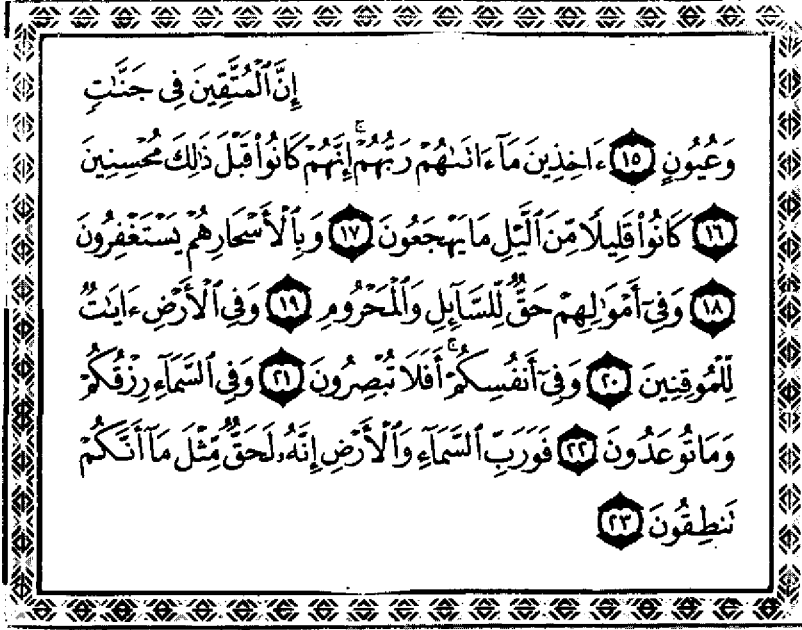 إِنَّ ٱلْمُتَّقِينَ فِى جَنَّـٰتٍ
وَعُيُونٍ ١٥ ءَاخِذِينَ مَآ ءَاتَىٰهُمْ رَبُّهُمْ ۚ إِنَّهُمْ كَانُوا۟ قَبْلَ ذَٰلِكَ مُحْسِنِينَ
١٦ كَانُوا۟ قَلِيلًا مِّنَ ٱلَّيْلِ مَا يَهْجَعُونَ ١٧ وَبِٱلْأَسْحَارِ هُمْ يَسْتَغْفِرُونَ
١٨ وَفِىٓ أَمْوَٰلِهِمْ حَقٌّ لِّلسَّآئِلِ وَٱلْمَحْرُومِ ١٩ وَفِى ٱلْأَرْضِ ءَايَـٰتٌ
لِّلْمُوقِنِينَ ٢٠ وَفِىٓ أَنفُسِكُمْ ۚ أَفَلَا تُبْصِرُونَ ٢١ وَفِى ٱلسَّمَآءِ رِزْقُكُمْ
وَمَا تُوعَدُونَ ٢٢ فَوَرَبِّ ٱلسَّمَآءِ وَٱلْأَرْضِ إِنَّهُۥ لَحَقٌّ مِّثْلَ مَآ أَنَّكُمْ
تَنطِقُونَ ٢٣